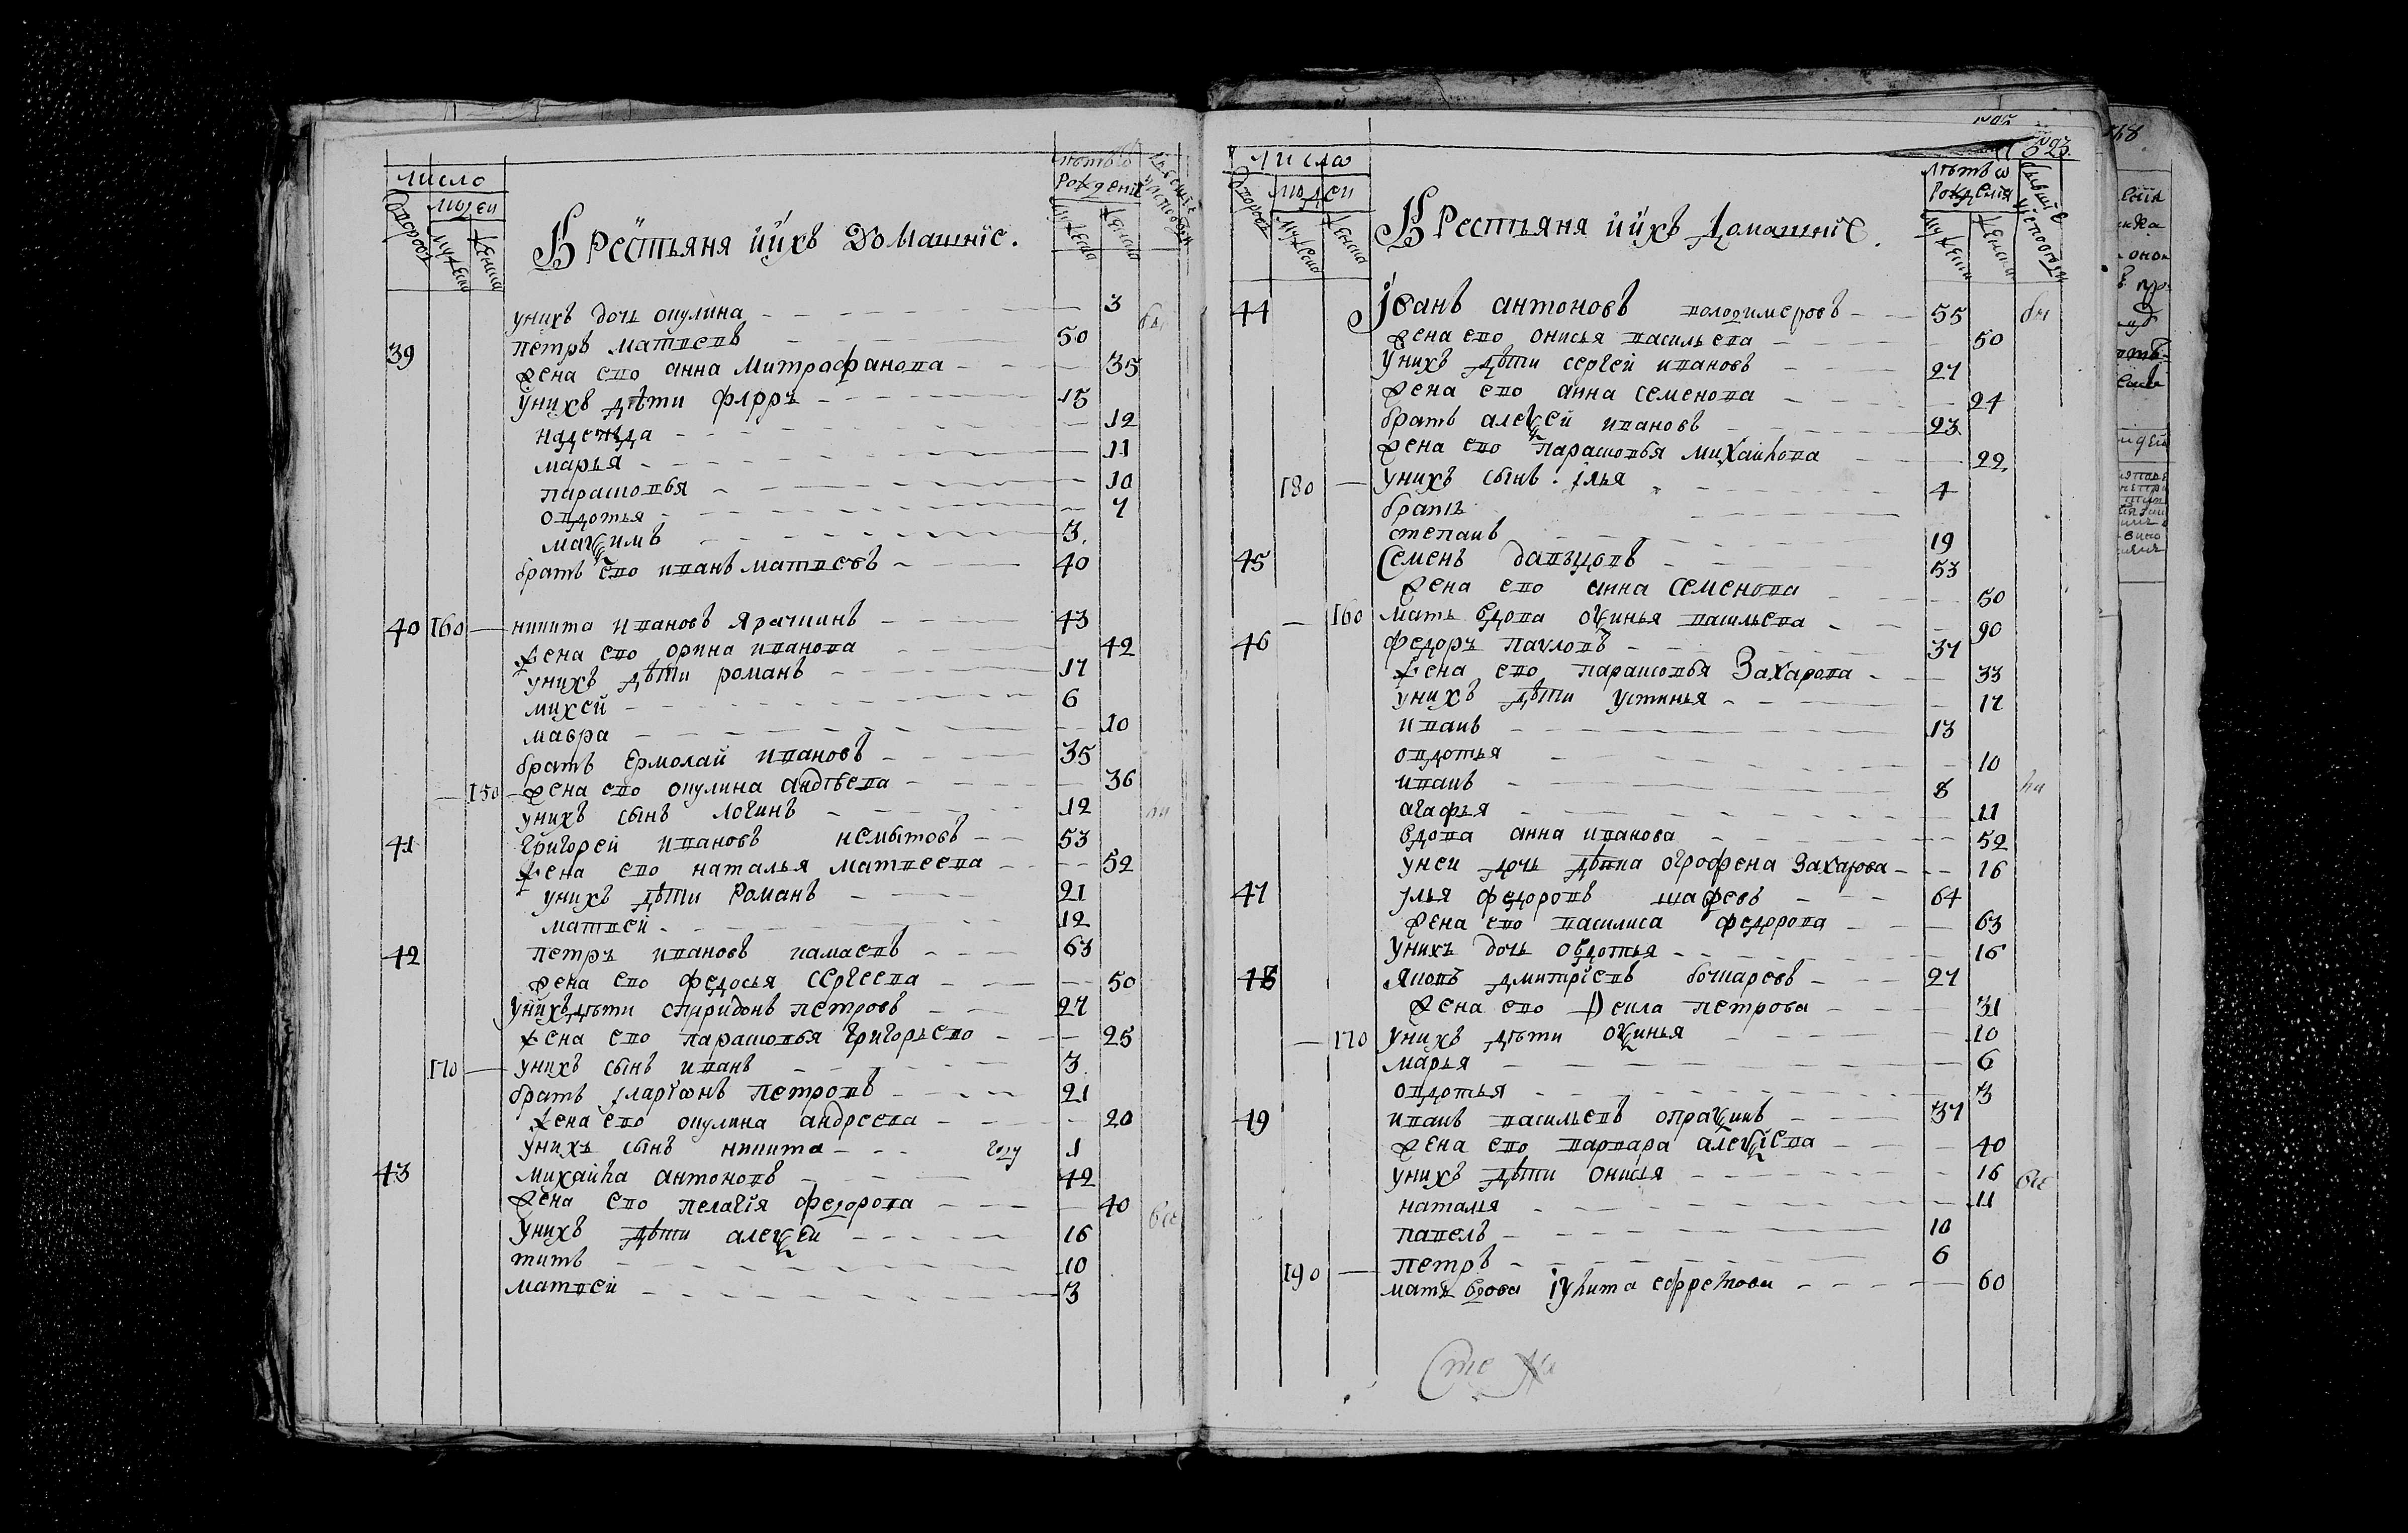 число
людей
дворовъ
мужеска
женска
Крестьяня иихъ домашніе.
лѣтъ
рожденїя
мужеска
женска
унихъ дочь окулина 3
39 петръ матвеевъ 50
жена ево анна митрофанова 35
унихъ дѣти флоръ 15
надежда 12
марья 11
парасковья 10
овдотья 7
маѯимъ 3
братъ ево иванъ матвеевъ 40
40 160 никита ивановъ ярачкинъ 43
жена ево орина иванова 42
унихъ дѣти романъ 17
михей 6
мавра 10
братъ ермолай ивановъ 35
150 жена ево окулина андреева 36
унихъ сынъ логинъ 12
41 григорей ивановъ немытовъ 53
жена ево наталья матвеева 52
унихъ дѣти романъ 21
матвей 12
42 петръ ивановъ камаевъ 63
жена ево федосья сергеева 50
унихъ дѣти спиридонъ петровъ 27
жена ево парасковья григорьево 25
170 унихъ сынъ иванъ 3
братъ ларїѡнъ петровъ 21
жена ево окулина андреева 20
унихъ сынъ никита году 1
43 михайла антоновъ 42
жена ево пелагїя федорова 40
унихъ дѣти алеѯей 16
титъ 10
матвей 3
числа
людеи
дворовъ
мужеска
женска
Крестьяня иихъ домашніе.
лѣтъ ѿ
рожденїя
мужеска
женска
44 Іванъ антоновъ володимеровъ 55
жена ево онисья васильева 50
унихъ дѣти сергей ивановъ 27
жена ево анна семенова 24
братъ алеѯей ивановъ 23
жена ево парасковья михайлова 22
180 унихъ сынъ илья 4
братъ
степанъ 19
45 семенъ 53
жена ево анна семенова 50
160 мать вдова оѯинья васильева 90
46 федоръ павловъ 37
жена ево парасковья захарова 33
унихъ дѣти устинья 17
иванъ 13
овдотья 10
иванъ 8
агафья 11
вдова анна иванова 52
унеи дочь девка огрофена захарова 16
47 илья федоровъ 64
жена ево василиса федорова 63
унихъ дочь овдотья 16
48 яковъ дмитрїевъ бочкаревъ 27
жена ево петрова 31
170 унихъ дѣти оѯинья 10
марья 6
овдотья 3
49 иванъ васильевъ опраѯинъ 37
жена ево варвара алеѯїева 40
унихъ дѣти онисья 16
наталья 11
павелъ 10
190 петръ 6
мать вдова іулита ефремова 60